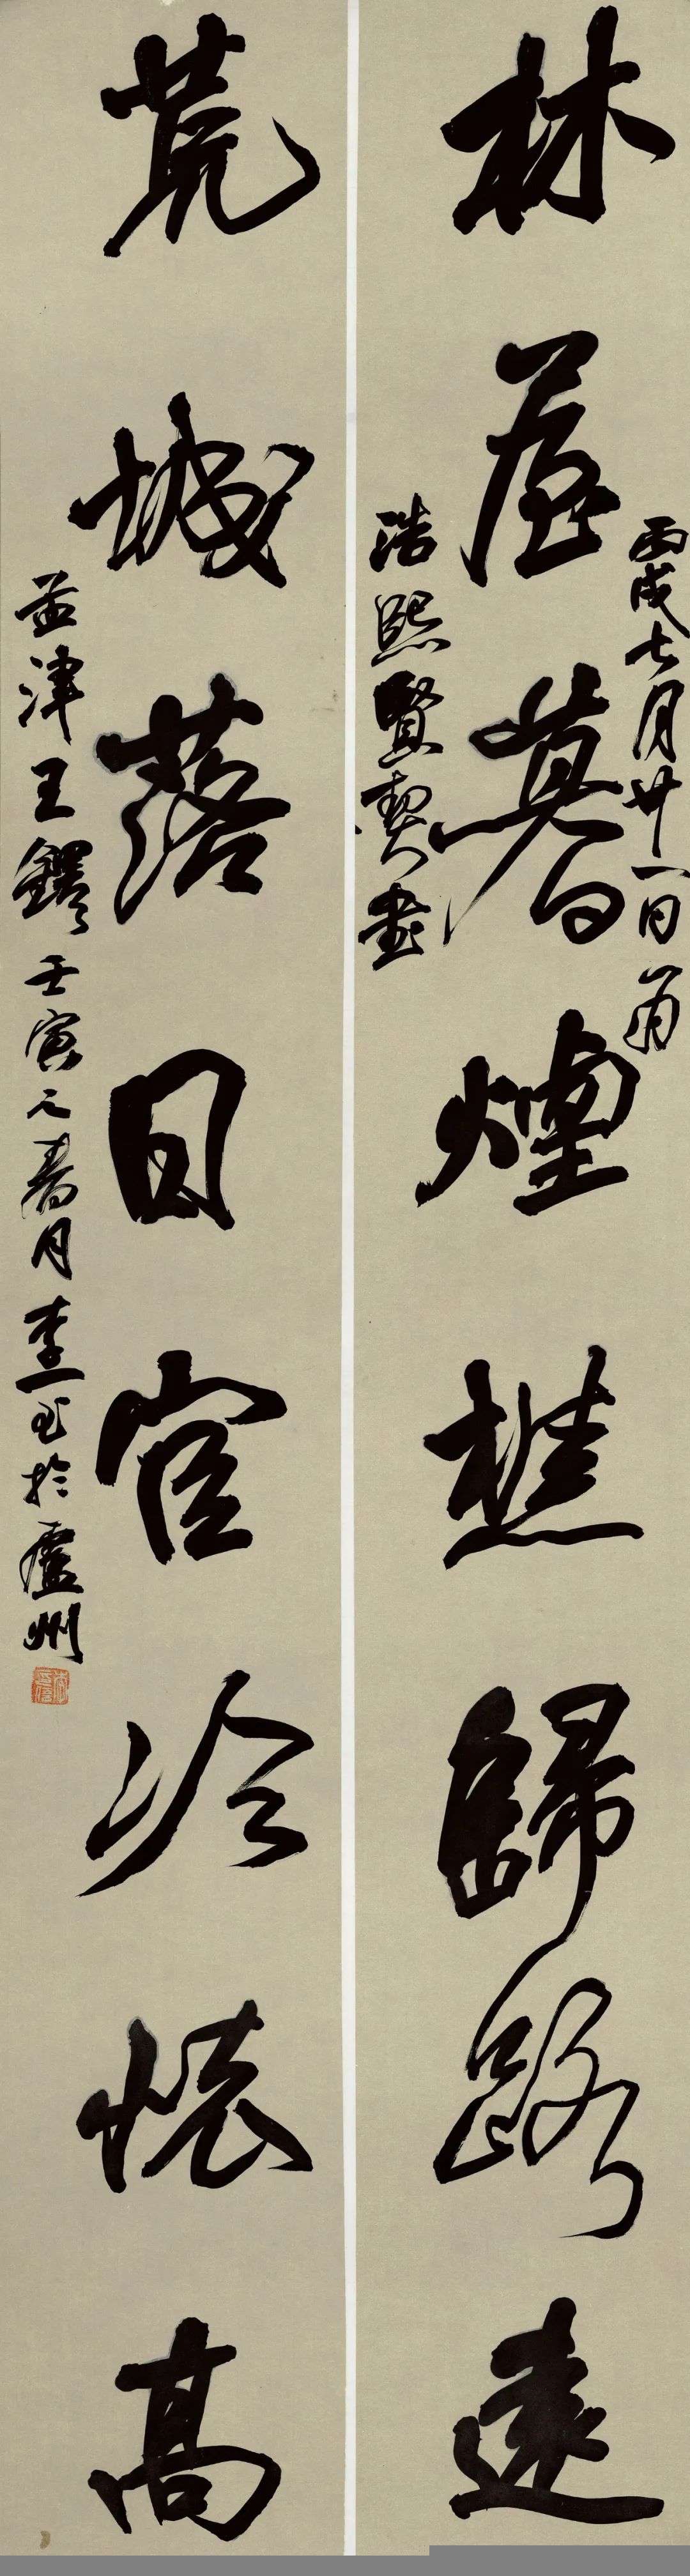 丙戌七月廿一日爲
林屋暮煙樵歸路遠
浩熙賢契書
荒城落日宦冷懷高
孟津王鐸 壬寅之春月李一 於廬州